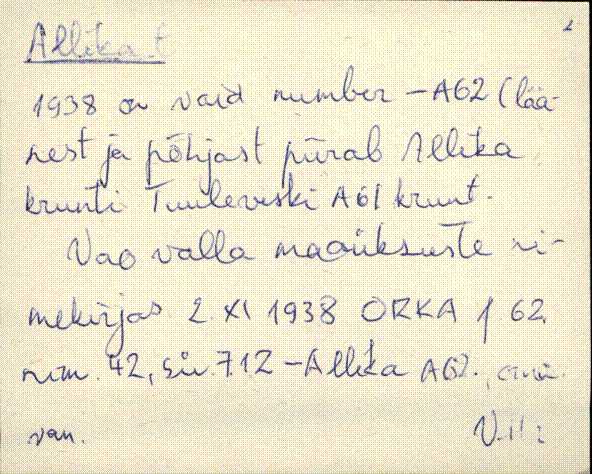 2
Allika t
1938 on vaid number – A62 (lää-
nest ja põhjast piirab Allika
krunti Tuuleveski A61 krunt.
Vao valla maaüksuste ni-
mekirjas 2. XI 1938 ORKA f 62,
nim. 42, sü. 712 – Allika A62.,
van.